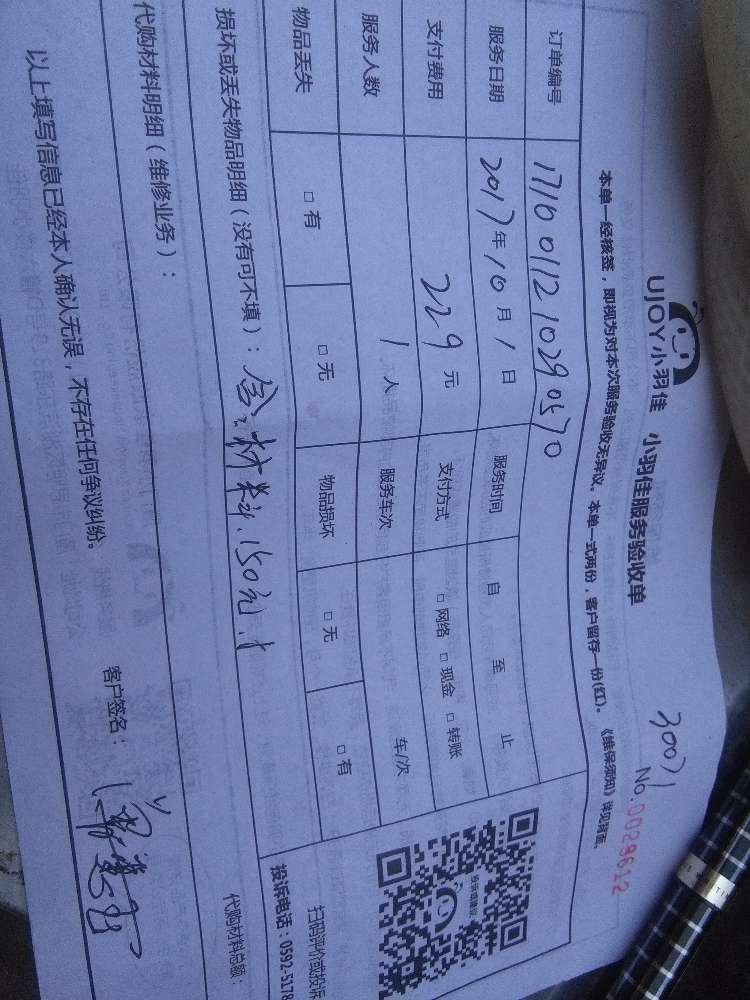 UJOY小羽佳 小羽佳服务验收单
30071
No.0029612
本单一经核签，即视为对本次服务验收无异议。本单一式两份，客户留存一份(红)。《维保须知》详见背面。
订单编号 1710011210290570
服务日期 2017年10月1日 服务时间 自 至 止
支付费用 229元 支付方式 □网络 □现金 □转账
服务人数 1人 服务车次 车/次
物品丢失 □有 □无 物品损坏 □无 □有
扫码评价或投诉
投诉电话：0592-5178
损坏或丢失物品明细（没有可不填）：含材料150元
代购材料明细（维修业务）： 代购材料总额：
以上填写信息已经本人确认无误，不存在任何争议纠纷。 客户签名：